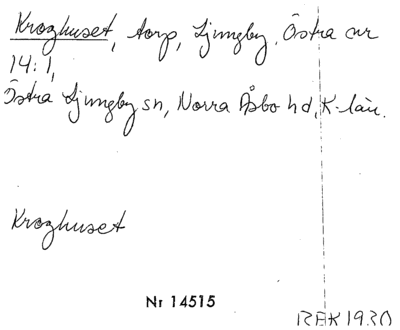 Kroghuset, torp, Ljungby, Östra nr
14:1,
Östra Ljungby sn, Norra Åsbo hd, K-län.
Kroghuset
Nr 14515
BEK 1930